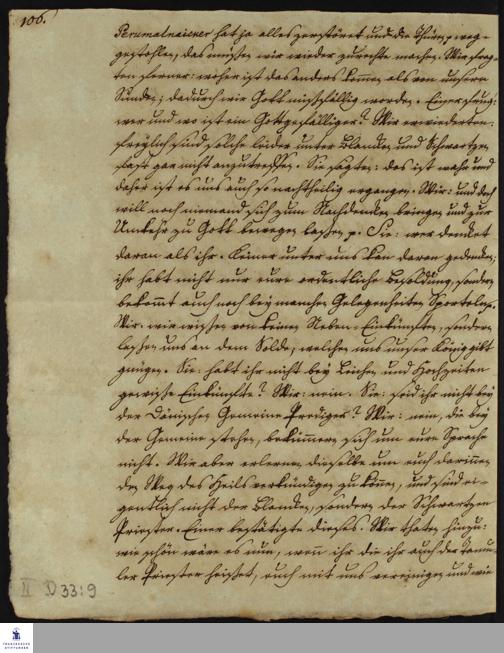 106.
Perumalnaicker hat ja alles zerstöret und die Thüren weg-
gestohlen, das müssen wir wieder zurechte machen. Wir frag-
ten ferner: woher ist das anders kommen als von unsern
Sünden; dadurch wir Gott mißfällig worden. Einer frug:
wer und wo ist ein Gottgefälliger? Wir erwiederten:
freylich sind solche leider unter Blanken und Schwartzen
fast gar nicht anzutreffen. Sie sagten: das ist wahr und
daher ist es uns auch so nachtheilig ergangen. Wir: und doch
will noch niemand sich zum Nachdencken bringen und zur
Umkehr zu Gott bewegen laßen p. Sie: wer dencket
daran als ihr. Keiner unter uns kan daran gedencken;
ihr habt nicht nur eure ordentliche Besoldung, sondern
bekommt auch noch bey manchen Gelegenheiten Sportelen.
Wir: wir wissen von keinen Neben-Einkünften, sondern
laßen uns an dem Solde, welchen uns unser König gibt
gnügen. Sie: habt ihr nicht bey Leichen und Hochzeiten
gewisse Einkünfte? Wir: nein. Sie: seid ihr nicht bey
der Dänischen Gemeine Prediger? Wir: nein, die bey
der Gemeine stehen, bekümmern sich um eure Sprache
nicht. Wir aber erlernen dieselbe um euch darinnen
den Weg des Heils verkündigen zu können, und sind ei-
gentlich nicht der Blanken, sondern der Schwartzen
Priester. Einer bestätigte dieses. Wir thaten hinzu:
wie schön wäre es nun, wenn ihr die ihr auch der Tamu-
ler Priester heißet, euch mit uns vereiniget und wie
II D 33:9
FRANCKESCHE
STIFTUNGEN